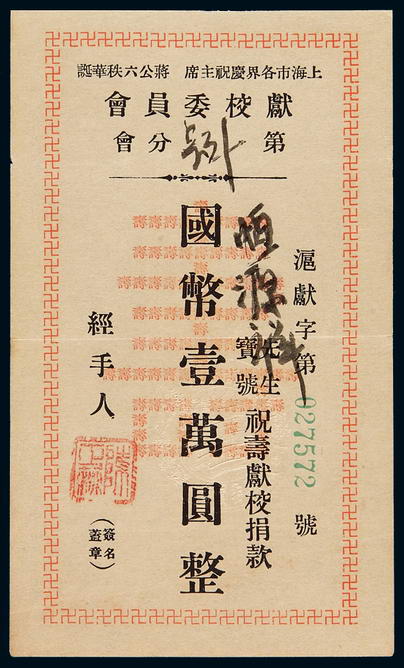 上海市各界慶祝主席 蔣公六秩華誕
獻校委員會
第 分會
滬獻字第 027572 號
恒源祥 先生寶號 祝壽獻校捐款
國幣壹萬圓整
經手人
(簽名蓋章)